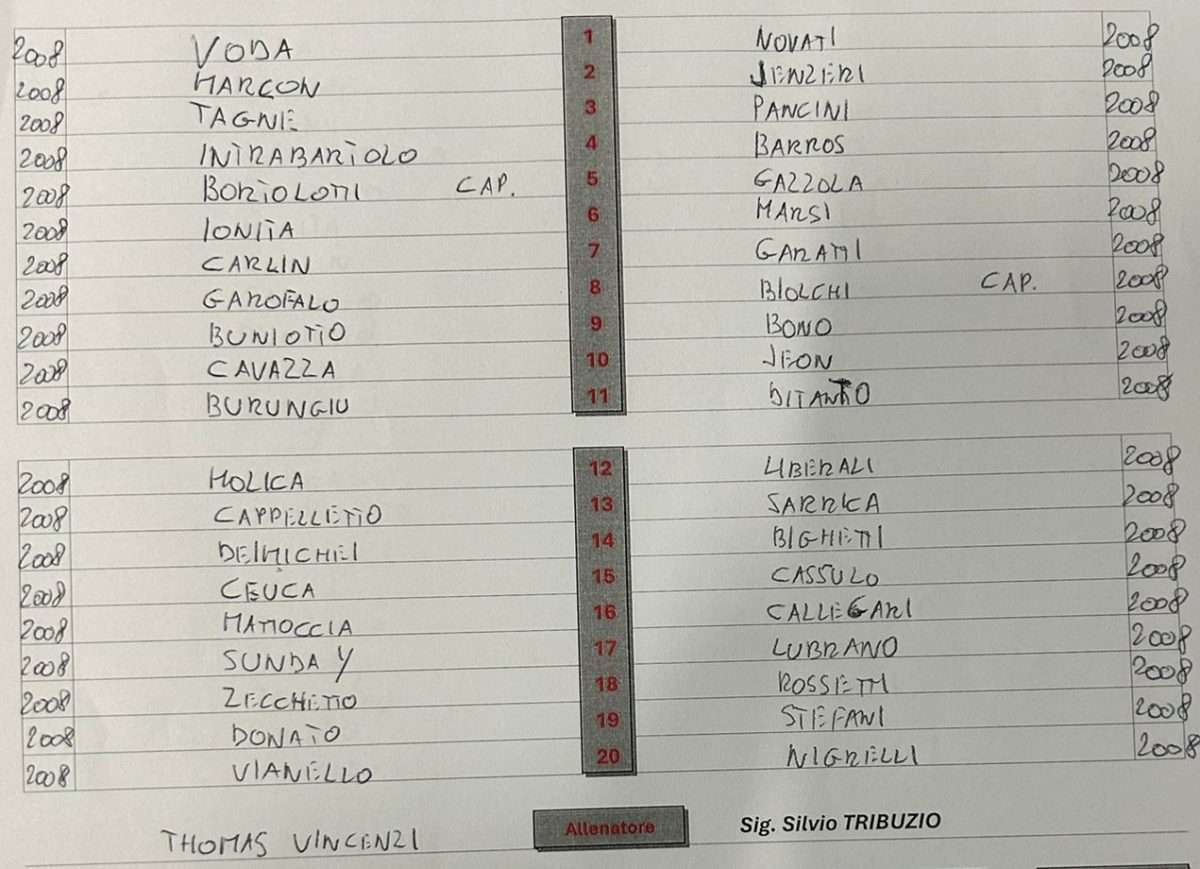 2008 VODA 1 NOVATI 2008
2008 MARCON 2 JENZERI 2008
2008 TAGNE 3 PANCINI 2008
2008 INTRABARTOLO 4 BARROS 2008
2008 BORTOLOTTI CAP. 5 GAZZOLA 2008
2008 IONITA 6 MARSI 2008
2008 CARLIN 7 GARATTI 2008
2008 GAROFALO 8 BIOLCHI CAP. 2008
2008 BUNIOTTO 9 BONO 2008
2008 CAVAZZA 10 JEON 2008
2008 BURUNGIU 11 DITANTO 2008
2008 MOLICA 12 LIBERALI 2008
2008 CAPPELLETTO 13 SARRICA 2008
2008 DEMICHEI 14 BIGHETTI 2008
2008 CEUCA 15 CASSULO 2008
2008 MATTOCCIA 16 CALLEGARI 2008
2008 SUNDAY 17 LUBRANO 2008
2008 ZECCHETTO 18 ROSSETTI 2008
2008 DONATO 19 STEFANI 2008
2008 VIANELLO 20 NIGRELLI 2008
THOMAS VINCENZI Allenatore Sig. Silvio TRIBUZIO